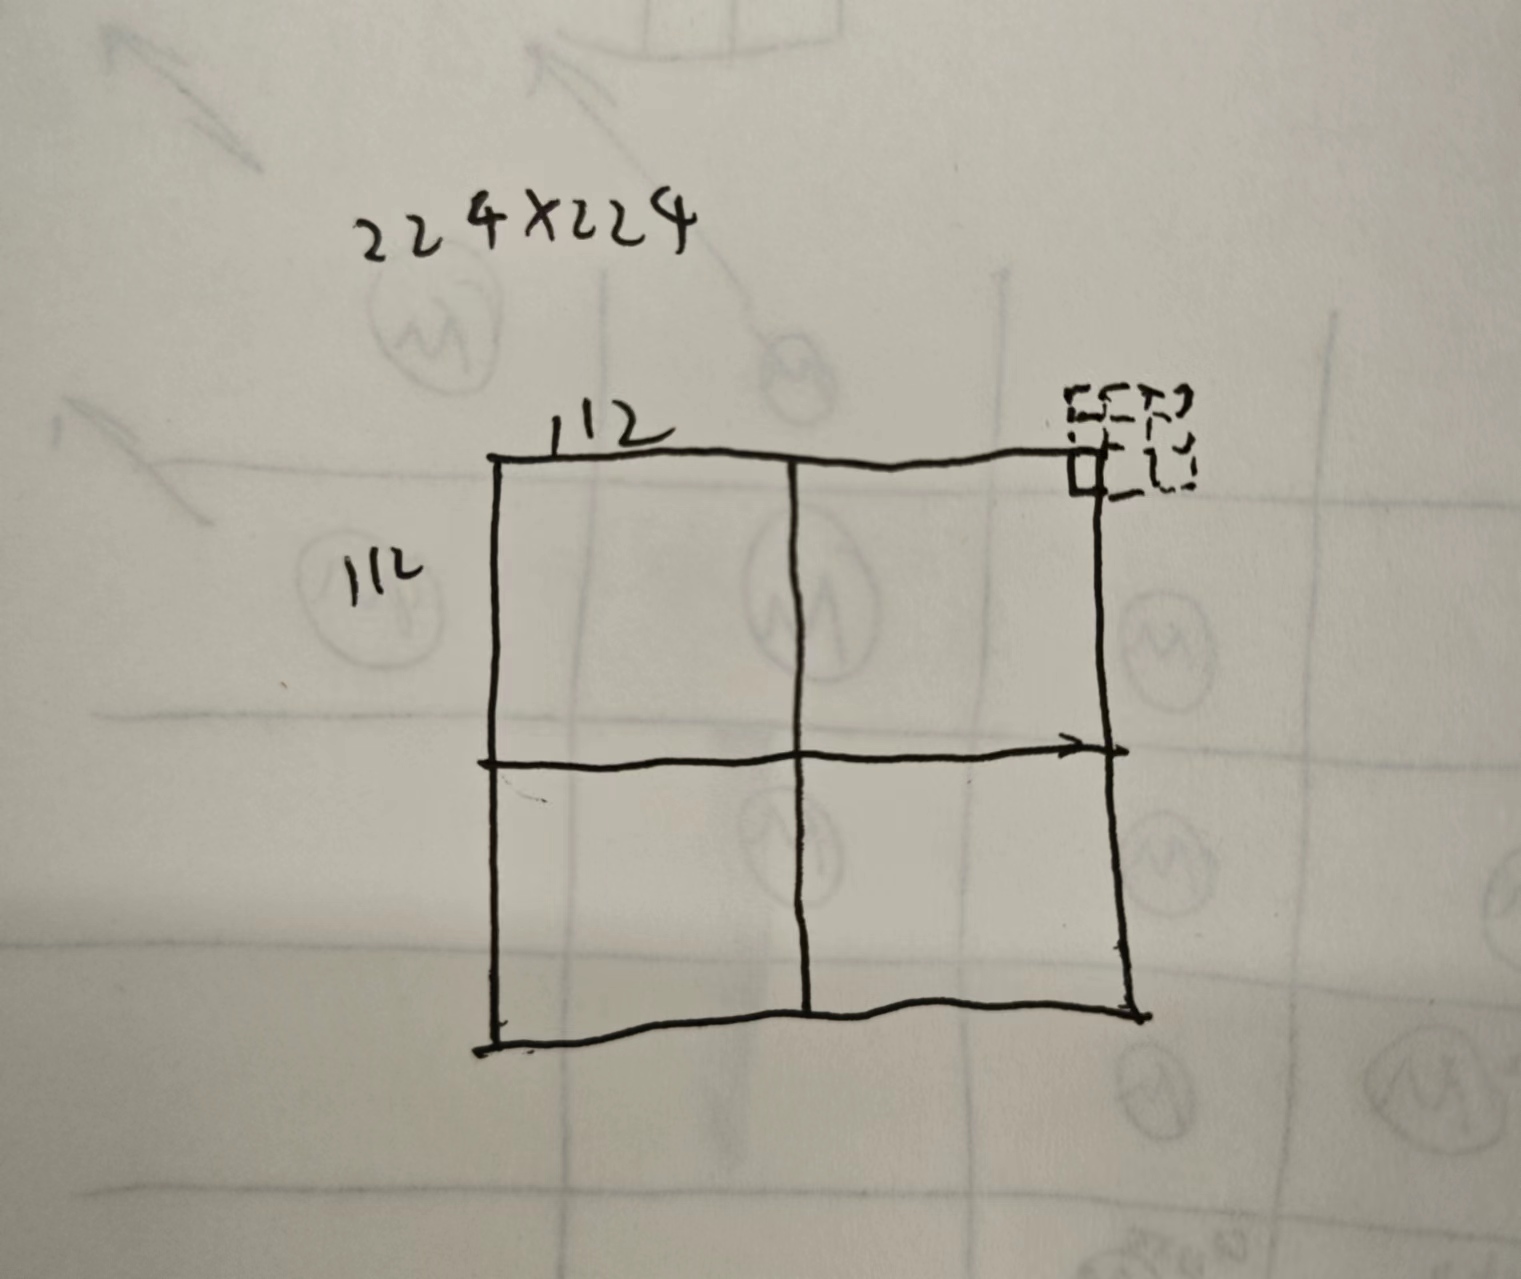 224×224
112
112